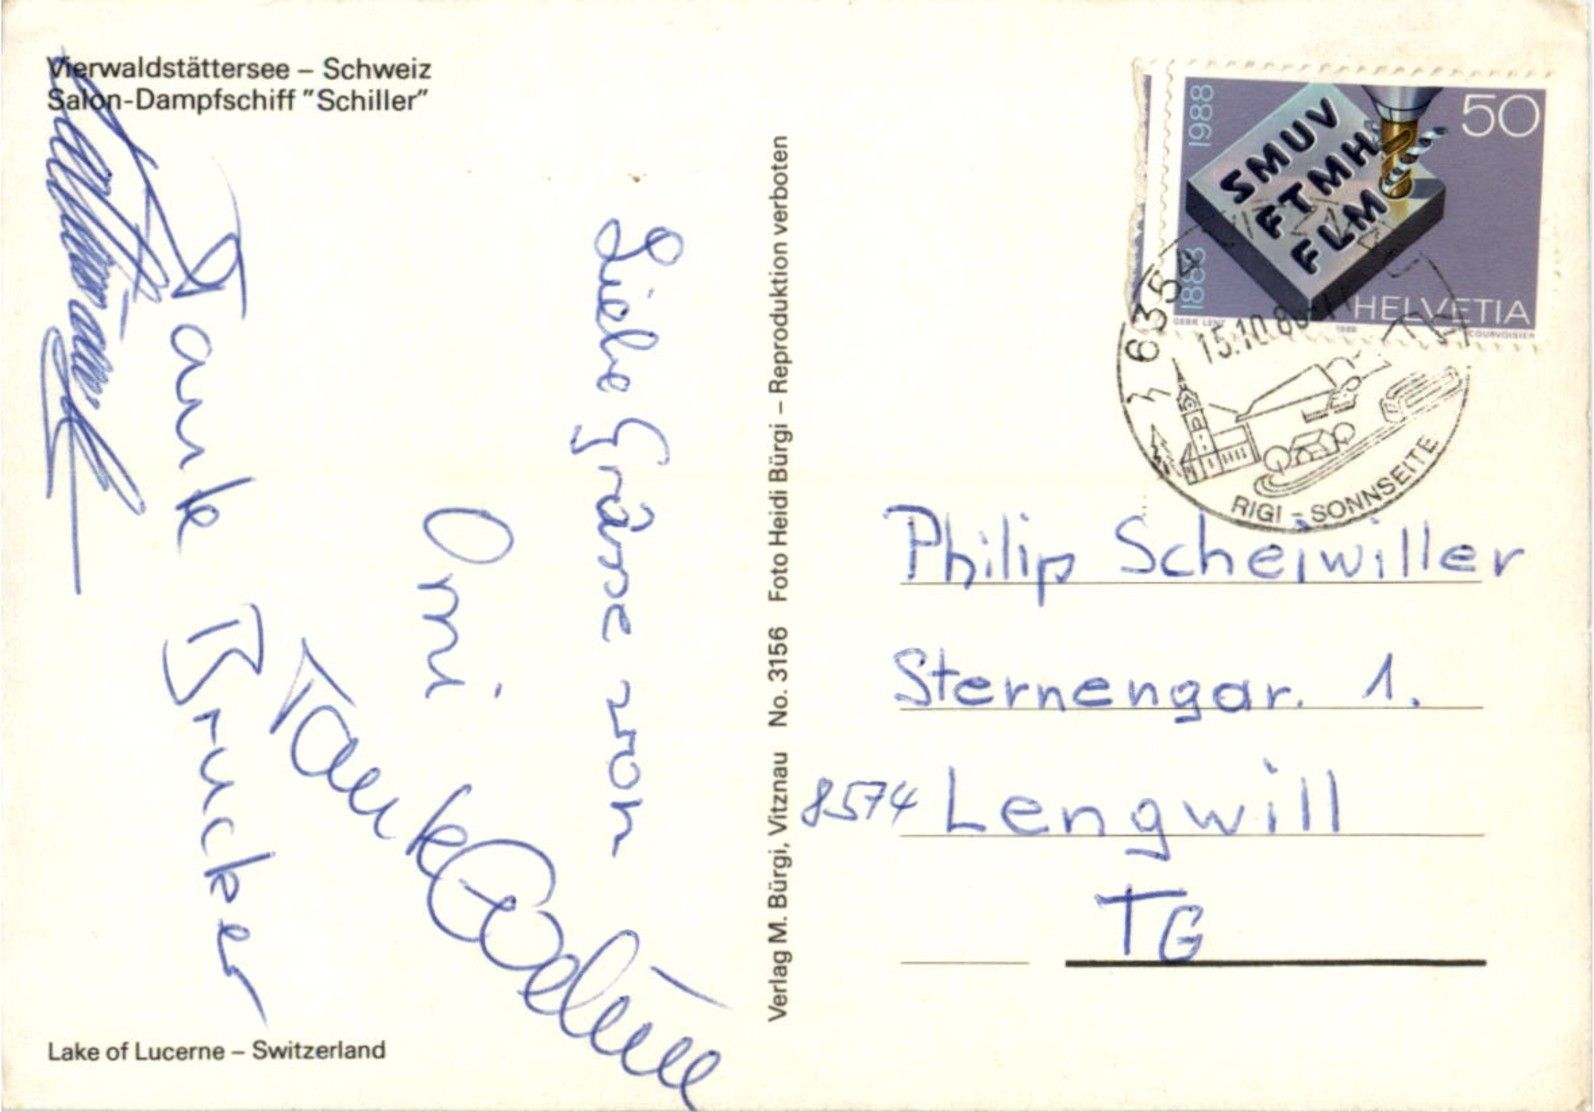 Vierwaldstättersee – Schweiz
Salon-Dampfschiff "Schiller"
Liebe Grüsse von
Omi
Tante
Tante Brucker
Verlag M. Bürgi, Vitznau No. 3156 Foto Heidi Bürgi – Reproduktion verboten
1888 1988
SMUV
FTMH
FLMO
50
HELVETIA
COURVOISIER
6354
15.10.88
RIGI – SONNSEITE
Philip Scheiwiller
Sternengar. 1.
8574 Lengwill
TG
Lake of Lucerne – Switzerland